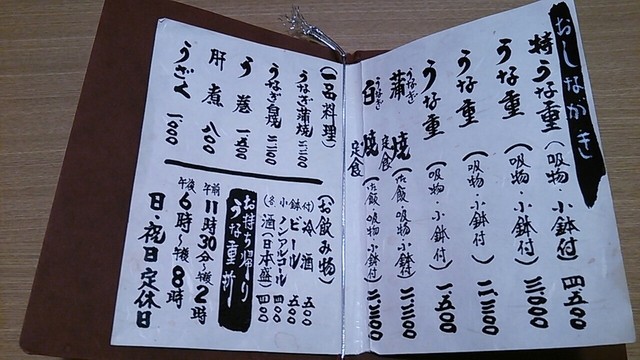 おしながき
特うな重(吸物・小鉢付)四、五〇〇
うな重(吸物・小鉢付)三、〇〇〇
うな重(吸物・小鉢付)二、三〇〇
うな重(吸物・小鉢付)一、五〇〇
うなぎ蒲焼定食(御飯・吸物・小鉢付)二、三〇〇
うなぎ白焼定食(御飯・吸物・小鉢付)二、三〇〇
(一品料理)
うなぎ蒲焼 二、一〇〇
うなぎ白焼 二、一〇〇
う巻 一、五〇〇
肝煮 八〇〇
うざく 一、〇〇〇
(お飲み物)
(各小鉢付)
冷酒 五〇〇
ビール 五〇〇
ノンアルコール 四〇〇
酒(日本盛) 四〇〇
お持ち帰り
うな重・折
午前11時30分〜午後2時
午後6時〜午後8時
日・祝日定休日